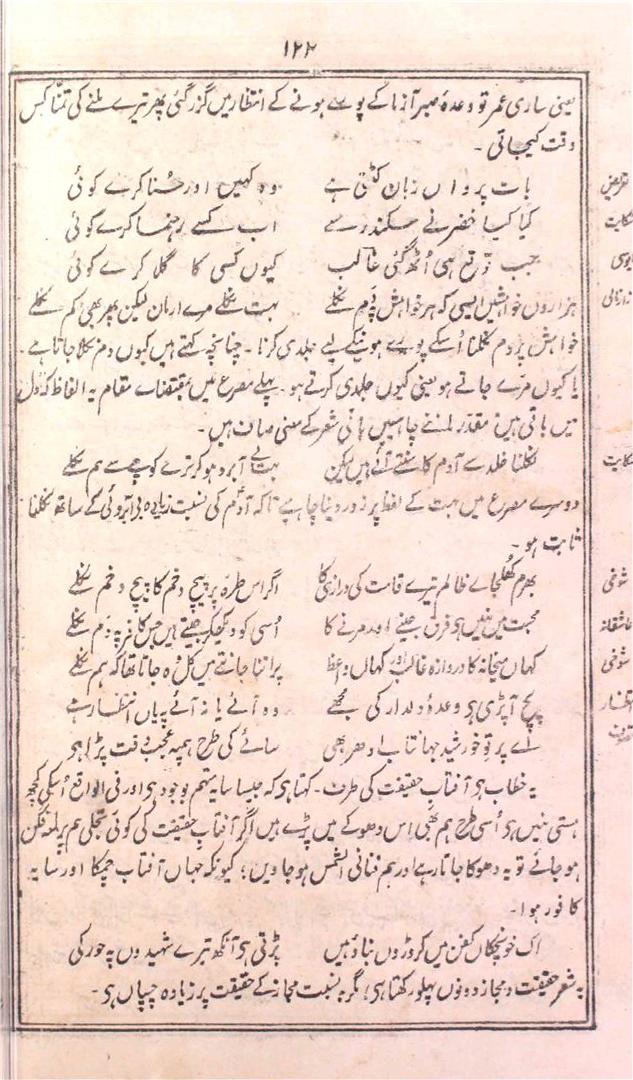 ۱۲۲
یعنی ساری عمر تو وعدۂ صبر آزما کے پورے ہونے کے انتظار میں گزر گئی پھر تیرے ملنے کی تمنّا کس
وقت کیجاتی -
بات پر واں زبان کٹتی ہے وہ کہیں اور سُنا کرے کوئی
کیا کیا خضر نے سکندر سے اب کسے رہنما کرے کوئی
جب توقع ہی اُٹھ گئی غالب کیوں کسی کا گلا کرے کوئی
ہزاروں خواہشیں ایسی کہ ہر خواہش پہ دم نکلے بہت نکلے مرے ارمان لیکن پھر بھی کم نکلے
خواہش پر دم نکلنا اُسکے پورے ہونیکے لیے جلدی کرنا - چنانچہ کہتے ہیں کیوں دم نکلا جاتا ہے -
یا کیوں مرے جاتے ہو یعنی کیوں جلدی کرتے ہو - پہلے مصرع میں بمقتضاے مقام یہ الفاظ کہ دل
میں باقی ہیں مقدّر ماننے چاہییں باقی شعر کے معنی صاف ہیں -
نکلنا خلد سے آدم کا سنتے آئے ہیں لیکن بہت بے آبرو ہو کر ترے کوچے سے ہم نکلے
دوسرے مصرع میں بہت کے لفظ پر زور دینا چاہیے تاکہ آدم کی نسبت زیادہ بی آبروئی کے ساتھ نکلنا
ثابت ہو -
بھرم کھُلجاے ظالم تیرے قامت کی درازی کا اگر اس طرّہ پر پیچ و خم کا پیچ و خم نکلے
محبت میں نہیں ہی فرق جینے اور مرنے کا اُسی کو دیکھکر جیتے ہیں جس کافر پہ دم نکلے
کہاں میخانہ کا دروازہ غالب اور کہاں واعظ پر اتنا جانتے ہیں کل وہ جاتا تھا کہ ہم نکلے
پیچ آپڑی ہی وعدۂ دلدار کی مجھے وہ آئے یا نہ آئے پہ یاں انتظار ہے
اے پرتوِ خورشید جہانتاب ادھر بھی سائے کی طرح ہمپہ عجب وقت پڑا ہی
یہ خطاب ہی آفتابِ حقیقت کی طرف - کہتا ہی کہ جیسا سایہ متّہم بوجود ہی اور فی الواقع اُسکی کچھ
ہستی نہیں ہی اُسی طرح ہم بھی اِس دھوکے میں پڑے ہیں اگر آفتابِ حقیقت کی کوئی تجلّی ہم پر لمعہ فگن
ہو جائے تو یہ دھوکا جاتا رہے اور ہم فنا فی الشمس ہو جاویں ؛ کیونکہ جہاں آفتاب چمکا اور سایہ
کافور ہوا -
اک خونچکاں کفن میں کروڑوں بناؤ ہیں پڑتی ہی آنکھ تیرے شہیدوں پہ حور کی
یہ شعر حقیقت و مجاز دونوں پہلو رکھتا ہی ؛ مگر بہ نسبت مجاز کے حقیقت پر زیادہ چسپاں ہی -
شکایت
شوخی
عاشقانہ
شوخی